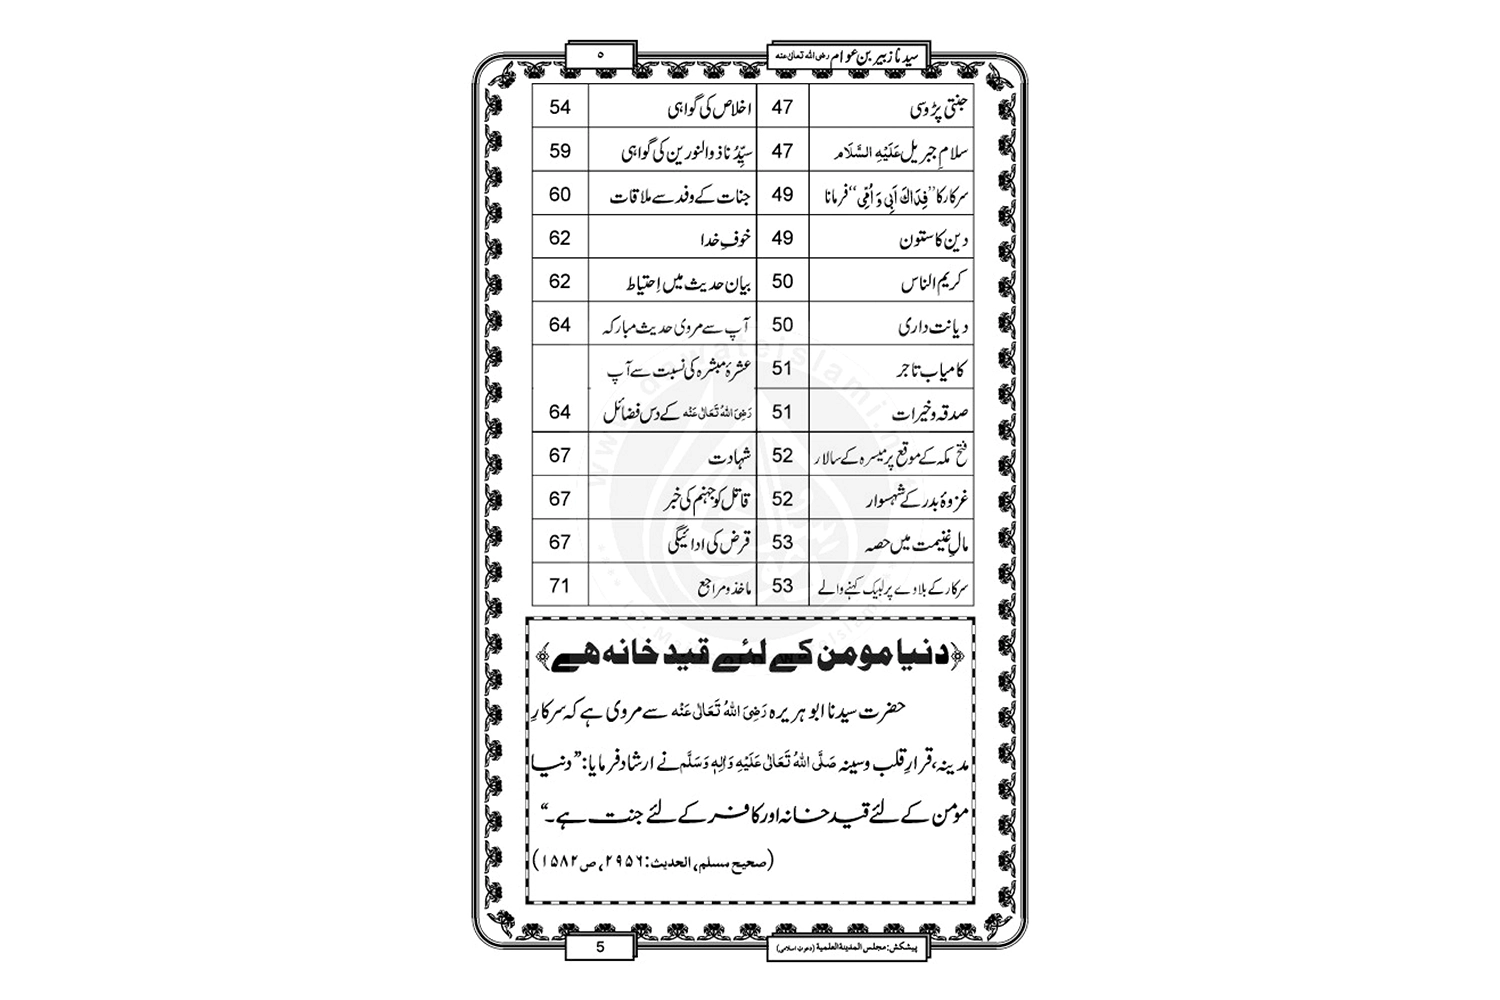 سیدنا زبیر بن عوام رضی اللہ تعالیٰ عنہ
۵
جنتی پڑوسی 47 اخلاص کی گواہی 54
سلامِ جبریل عَلَیْہِ السَّلَام 47 سیِّدُنا ذوالنورین کی گواہی 59
سرکار کا ’’فِدَاکَ اَبِی وَ اُمِّی‘‘ فرمانا 49 جنات کے وفد سے ملاقات 60
دین کا ستون 49 خوفِ خدا 62
کریم الناس 50 بیان حدیث میں اِحتیاط 62
دیانت داری 50 آپ سے مروی حدیث مبارکہ 64
کامیاب تاجر 51 عشرۂ مبشرہ کی نسبت سے آپ
صدقہ و خیرات 51 رَضِیَ اللہُ تَعَالٰی عَنْہ کے دس فضائل 64
فتح مکہ کے موقع پر میسرہ کے سالار 52 شہادت 67
غزوۂ بدر کے شہسوار 52 قاتل کو جہنم کی خبر 67
مالِ غنیمت میں حصہ 53 قرض کی ادائیگی 67
سرکار کے بلاوے پر لبیک کہنے والے 53 ماخذ و مراجع 71
﴿دنیا مومن کے لئے قید خانہ ہے﴾
حضرت سیدنا ابو ہریرہ رَضِیَ اللہُ تَعَالٰی عَنْہ سے مروی ہے کہ سرکارِ
مدینہ، قرارِ قلب و سینہ صَلَّی اللہُ تَعَالٰی عَلَیْہِ وَاٰلِہٖ وَسَلَّم نے ارشاد فرمایا: ’’دنیا
مومن کے لئے قید خانہ اور کافر کے لئے جنت ہے۔‘‘
(صحیح مسلم، الحدیث: ۲۹۵۶، ص ۱۵۸۲)
پیشکش: مجلس المدینۃ العلمیۃ (دعوتِ اسلامی)
5